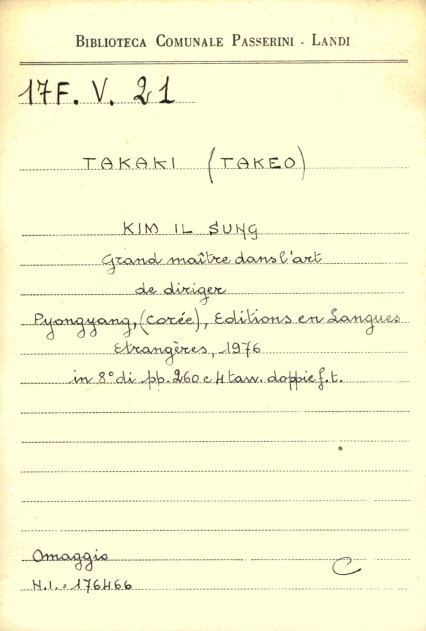 BIBLIOTECA COMUNALE PASSERINI - LANDI
17F. V. 21
TAKAKI (TAKEO)
KIM IL SUNG
Grand maître dans l'art
de diriger
Pyongyang, (Corée), Editions en Langues
Etrangères, 1976
in 8° di pp. 260 e 4 tav. doppie f.t.
Omaggio
C
N.I. = 176466